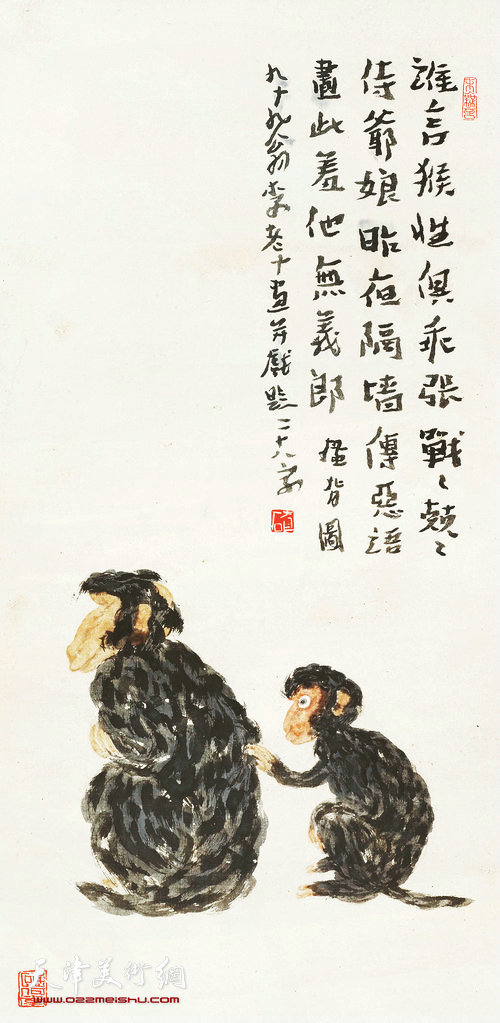 誰言猴性俱乖張戰〻兢〻
侍爺娘昨夜隔墙傳惡語
畫此羞他無義郎 搔背圖
九十九翁李老十畫并戲題二十八字
天津美術網
www.022meishu.com